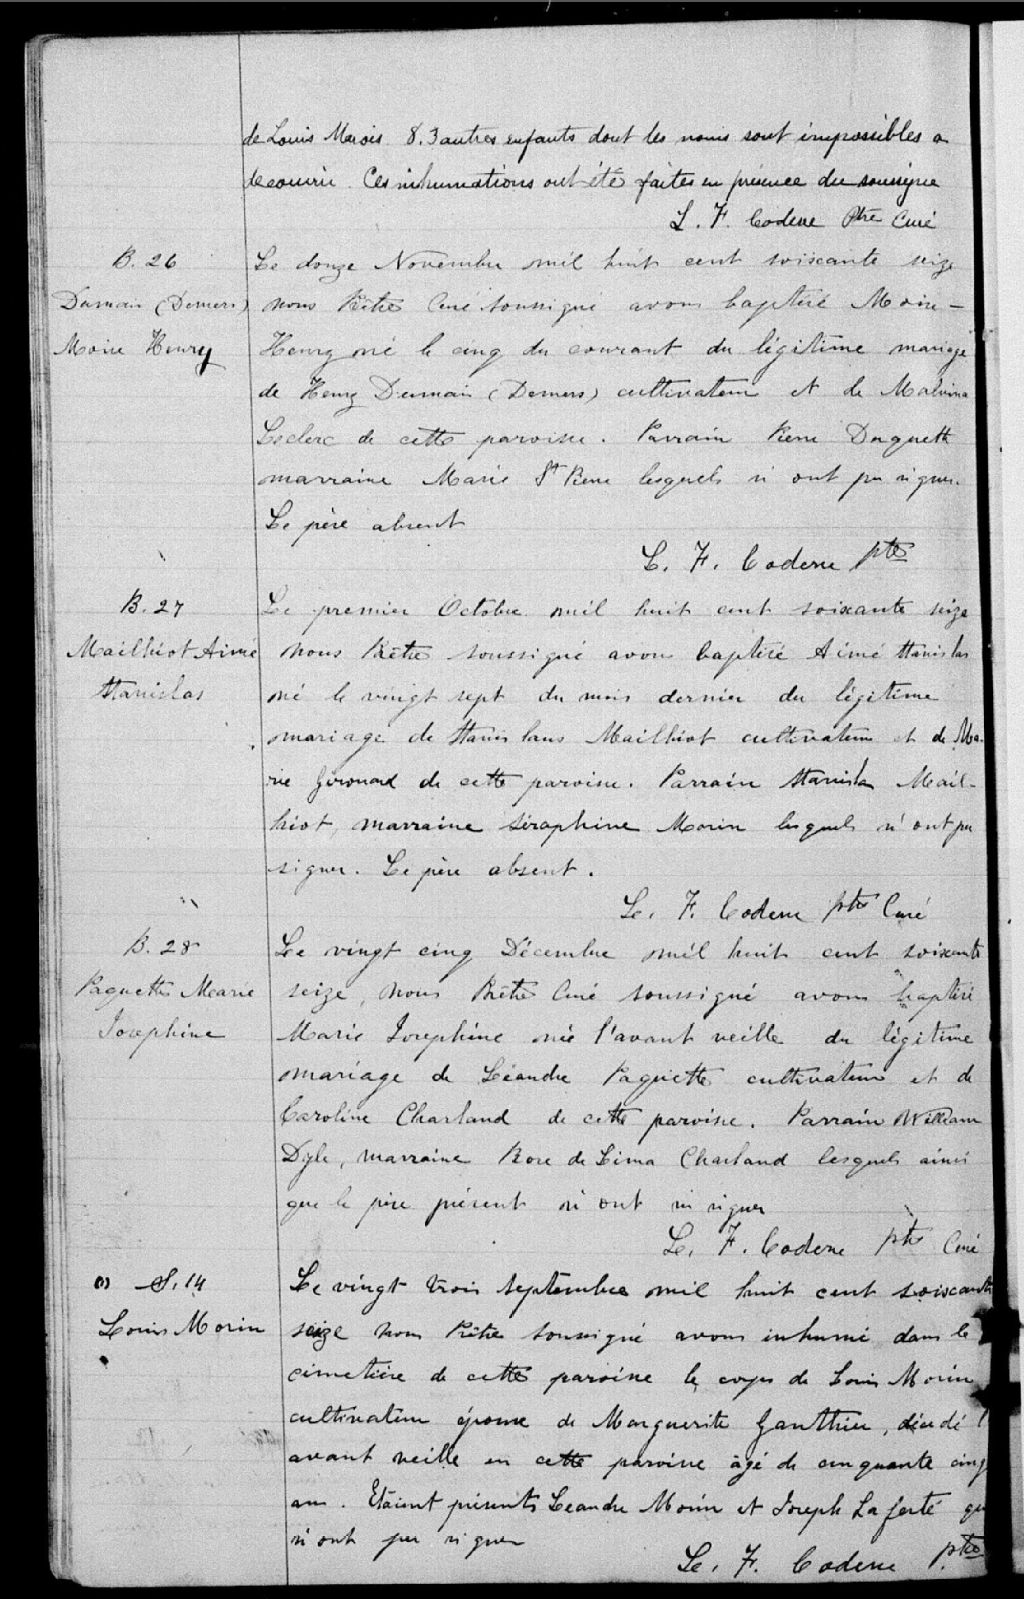 de Louis Marois 8. 3 autres enfants dont les noms sont impossibles a
decouvrir. Ces inhumations ont été faites en présence du soussigne
L. F. Codere Ptre Curé
B. 26
Dumais (Demers)
Moise Henry
Le douze Novembre mil huit cent soixante seize
nous Prêtre Curé soussigné avons baptisé Moise-
Henry né le cinq du courant du légitime mariage
de Henry Dumais (Demers) cultivateur et de Malvina
Leclerc de cette paroisse. Parrain Pierre Duquette
marraine Marie St Pierre lesquels n'ont pu signer.
Le père absent
L. F. Codere ptre
B. 27
Mailhiot Aimé
Stanislas
Le premier Octobre mil huit cent soixante seize
nous Prêtre soussigné avons baptisé Aimé Stanislas
né le vingt sept du mois dernier du légitime
mariage de Stanislaus Mailhiot cultivateur et de Ma-
rie Girouard de cette paroisse. Parrain Stanislas Mail-
hiot, marraine Séraphine Morin lesquels n'ont pu
signer. Le père absent.
L. F. Codere ptre Curé
B. 28
Paquette Marie
Josephine
Le vingt cinq Décembre mil huit cent soixante
seize, nous Prêtre Curé soussigné avons baptisé
Marie Josephine née l'avant veille du légitime
mariage de Léandre Paquette cultivateur et de
Caroline Charland de cette paroisse. Parrain William
Dyle, marraine Rose de Lima Charland lesquels ainsi
que le père présent n'ont su signer
L. F. Codere ptre Curé
S. 14
Louis Morin
Le vingt trois Septembre mil huit cent soixante
seize nous Prêtre soussigné avons inhumé dans le
cimetière de cette paroisse le corps de Louis Morin
cultivateur époux de Marguerite Gauthier, décédé l'
avant veille en cette paroisse âgé de cinquante cinq
ans. Etaient présents Leandre Morin et Joseph Laferté qui
n'ont pu signer
L. F. Codere ptre